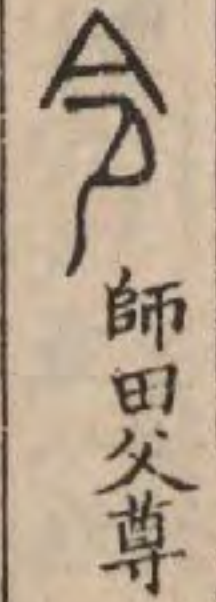 令
師田父尊